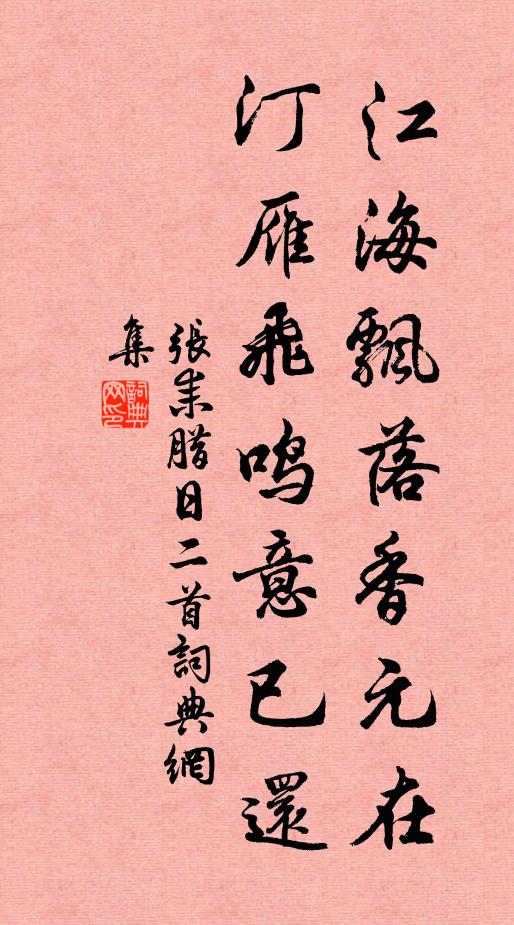 江海飄落香元在
汀雁飛鳴意已還
張耒腊日二首詞典網
集
詞典網印